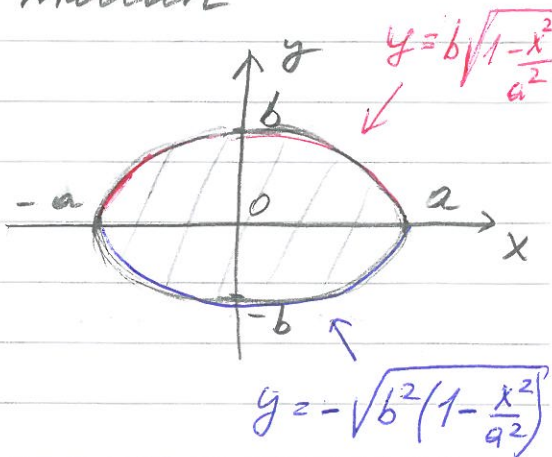 y
y = b√(1 - x²/a²)
b
-a
0
a
x
-b
y = -√(b²(1 - x²/a²))